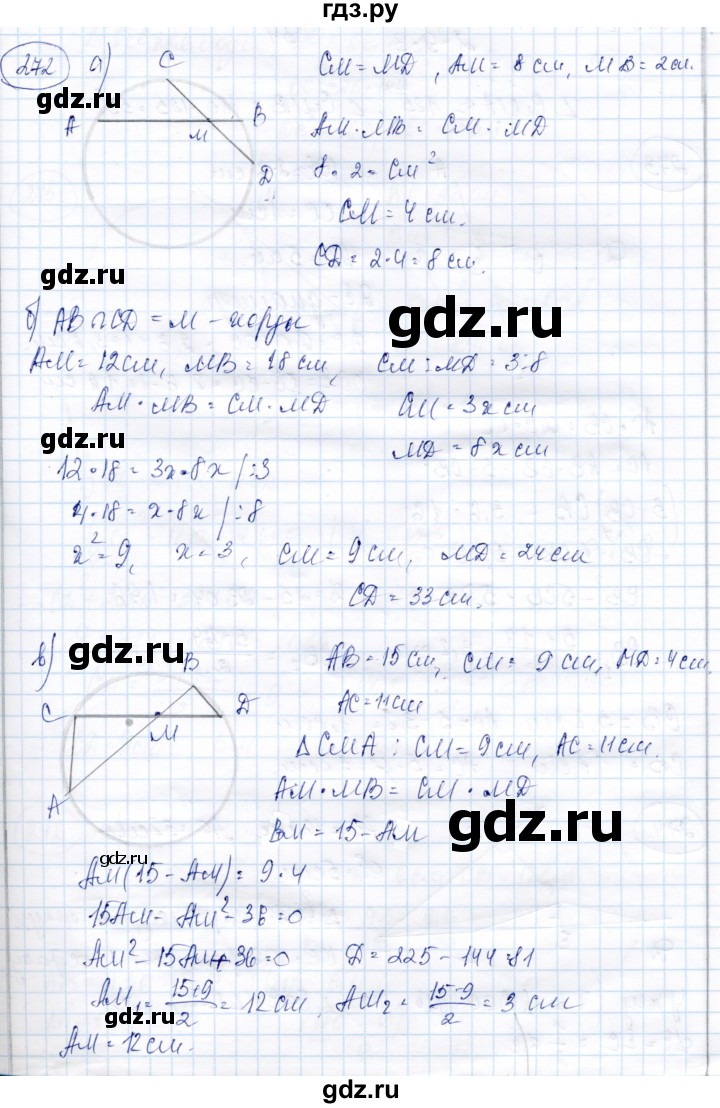 гдз.ру
272 а)
C A M B D
CM = MD, AM = 8 см, MB = 2 см.
AM · MB = CM · MD
8 · 2 = CM²
CM = 4 см.
CD = 2·4 = 8 см.
gdz.ru
gdz.ru
gdz.ru
б) AB ∩ CD = M – хорды
AM = 12 см, MB = 18 см, CM : MD = 3:8
AM · MB = CM · MD CM = 3x см
MD = 8x см
gdz.ru
gdz.ru
12·18 = 3x·8x /:3
4·18 = x·8x /:8
x² = 9, x = 3, CM = 9 см, MD = 24 см
CD = 33 см.
gdz.ru
gdz.ru
в)
B C D M A
AB = 15 см, CM = 9 см, MD = 4 см.
AC = 11 см
△CMA : CM = 9 см, AC = 11 см.
AM · MB = CM · MD
BM = 15 – AM
gdz.ru
gdz.ru
AM(15 – AM) = 9·4
15AM – AM² – 36 = 0
AM² – 15AM + 36 = 0 D = 225 – 144 = 81
AM₁ = (15+9)/2 = 12 см, AM₂ = (15-9)/2 = 3 см
AM = 12 см.
gdz.ru
gdz.ru
гдз.ру